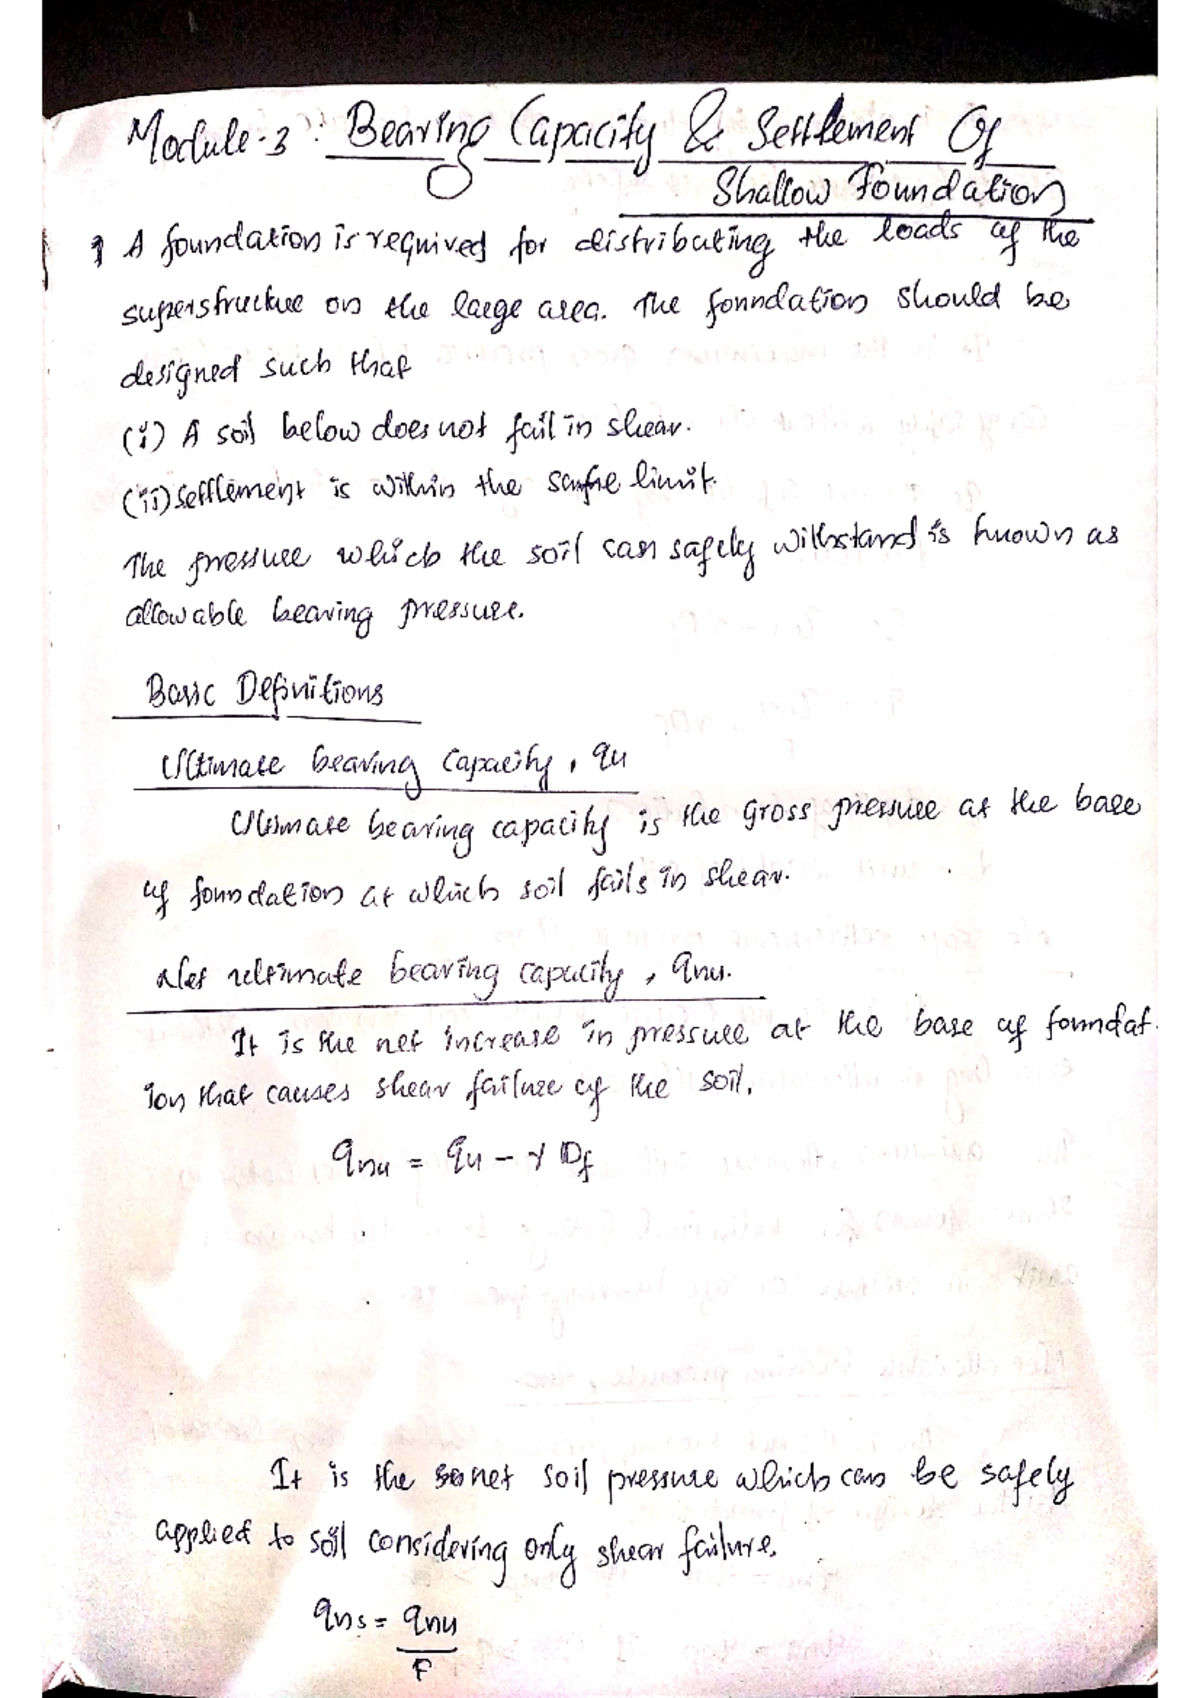 Module-3 : Bearing Capacity & Settlement Of
Shallow Foundation
A foundation is required for distributing the loads of the
superstructure on the large area. The foundation should be
designed such that
(i) A soil below does not fail in shear.
(ii) Settlement is within the safe limit.
The pressure which the soil can safely withstand is known as
allowable bearing pressure.
Basic Definitions
Ultimate bearing capacity, qu
Ultimate bearing capacity is the gross pressure at the base
of foundation at which soil fails in shear.
Net ultimate bearing capacity, qnu.
It is the net increase in pressure at the base of foundat-
ion that causes shear failure of the soil.
qnu = qu - γ Df
It is the net soil pressure which can be safely
applied to soil considering only shear failure.
qns = qnu
F